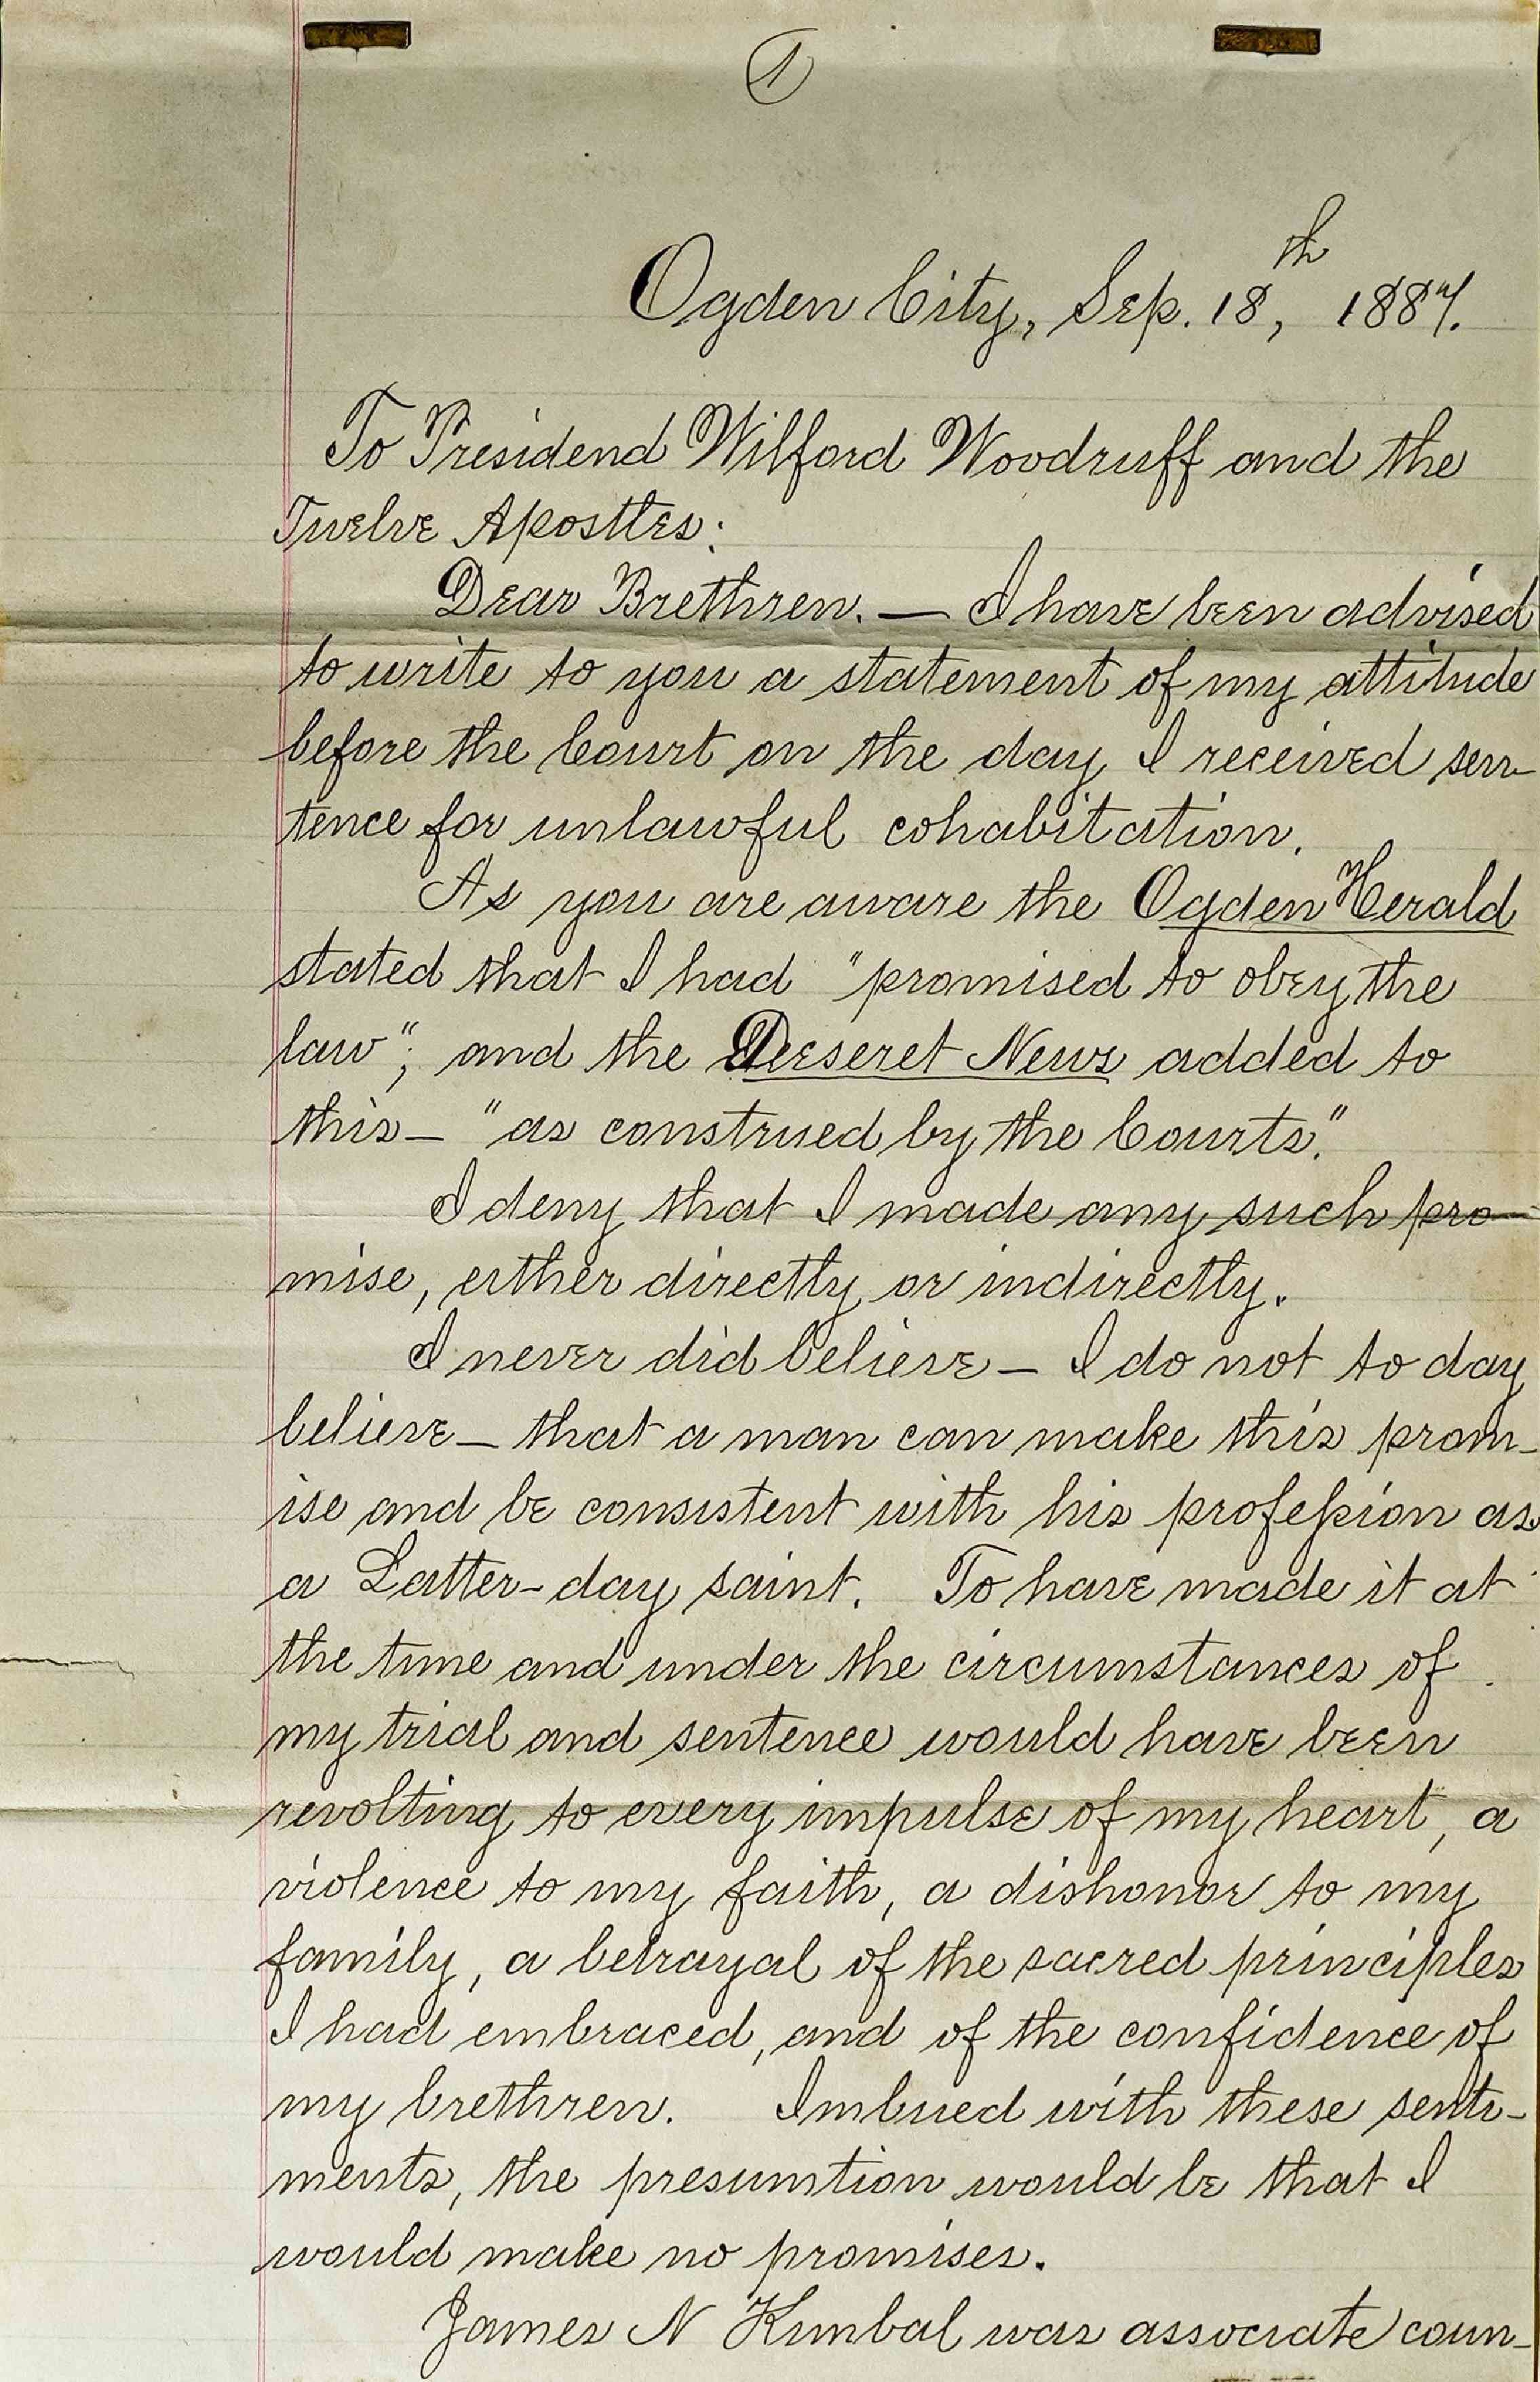 1
Ogden City, Sep. 18th, 1887.
To Presidend Wilford Woodruff and the
Twelve Apostles:
Dear Brethren. — I have been advised
to write to you a statement of my attitude
before the Court on the day I received sen-
tence for unlawful cohabitation.
As you are aware the Ogden Herald
stated that I had "promised to obey the
law"; and the Deseret News added to
this — "as construed by the Courts."
I deny that I made any such pro-
mise, either directly or indirectly.
I never did believe — I do not to day
believe — that a man can make this prom-
ise and be consistent with his profession as
a Latter-day saint. To have made it at
the time and under the circumstances of
my trial and sentence would have been
revolting to every impulse of my heart, a
violence to my faith, a dishonor to my
family, a betrayal of the sacred principles
I had embraced, and of the confidence of
my brethren. Imbued with these senti-
ments, the presumtion would be that I
would make no promises.
James N Kimbal was associate coun-